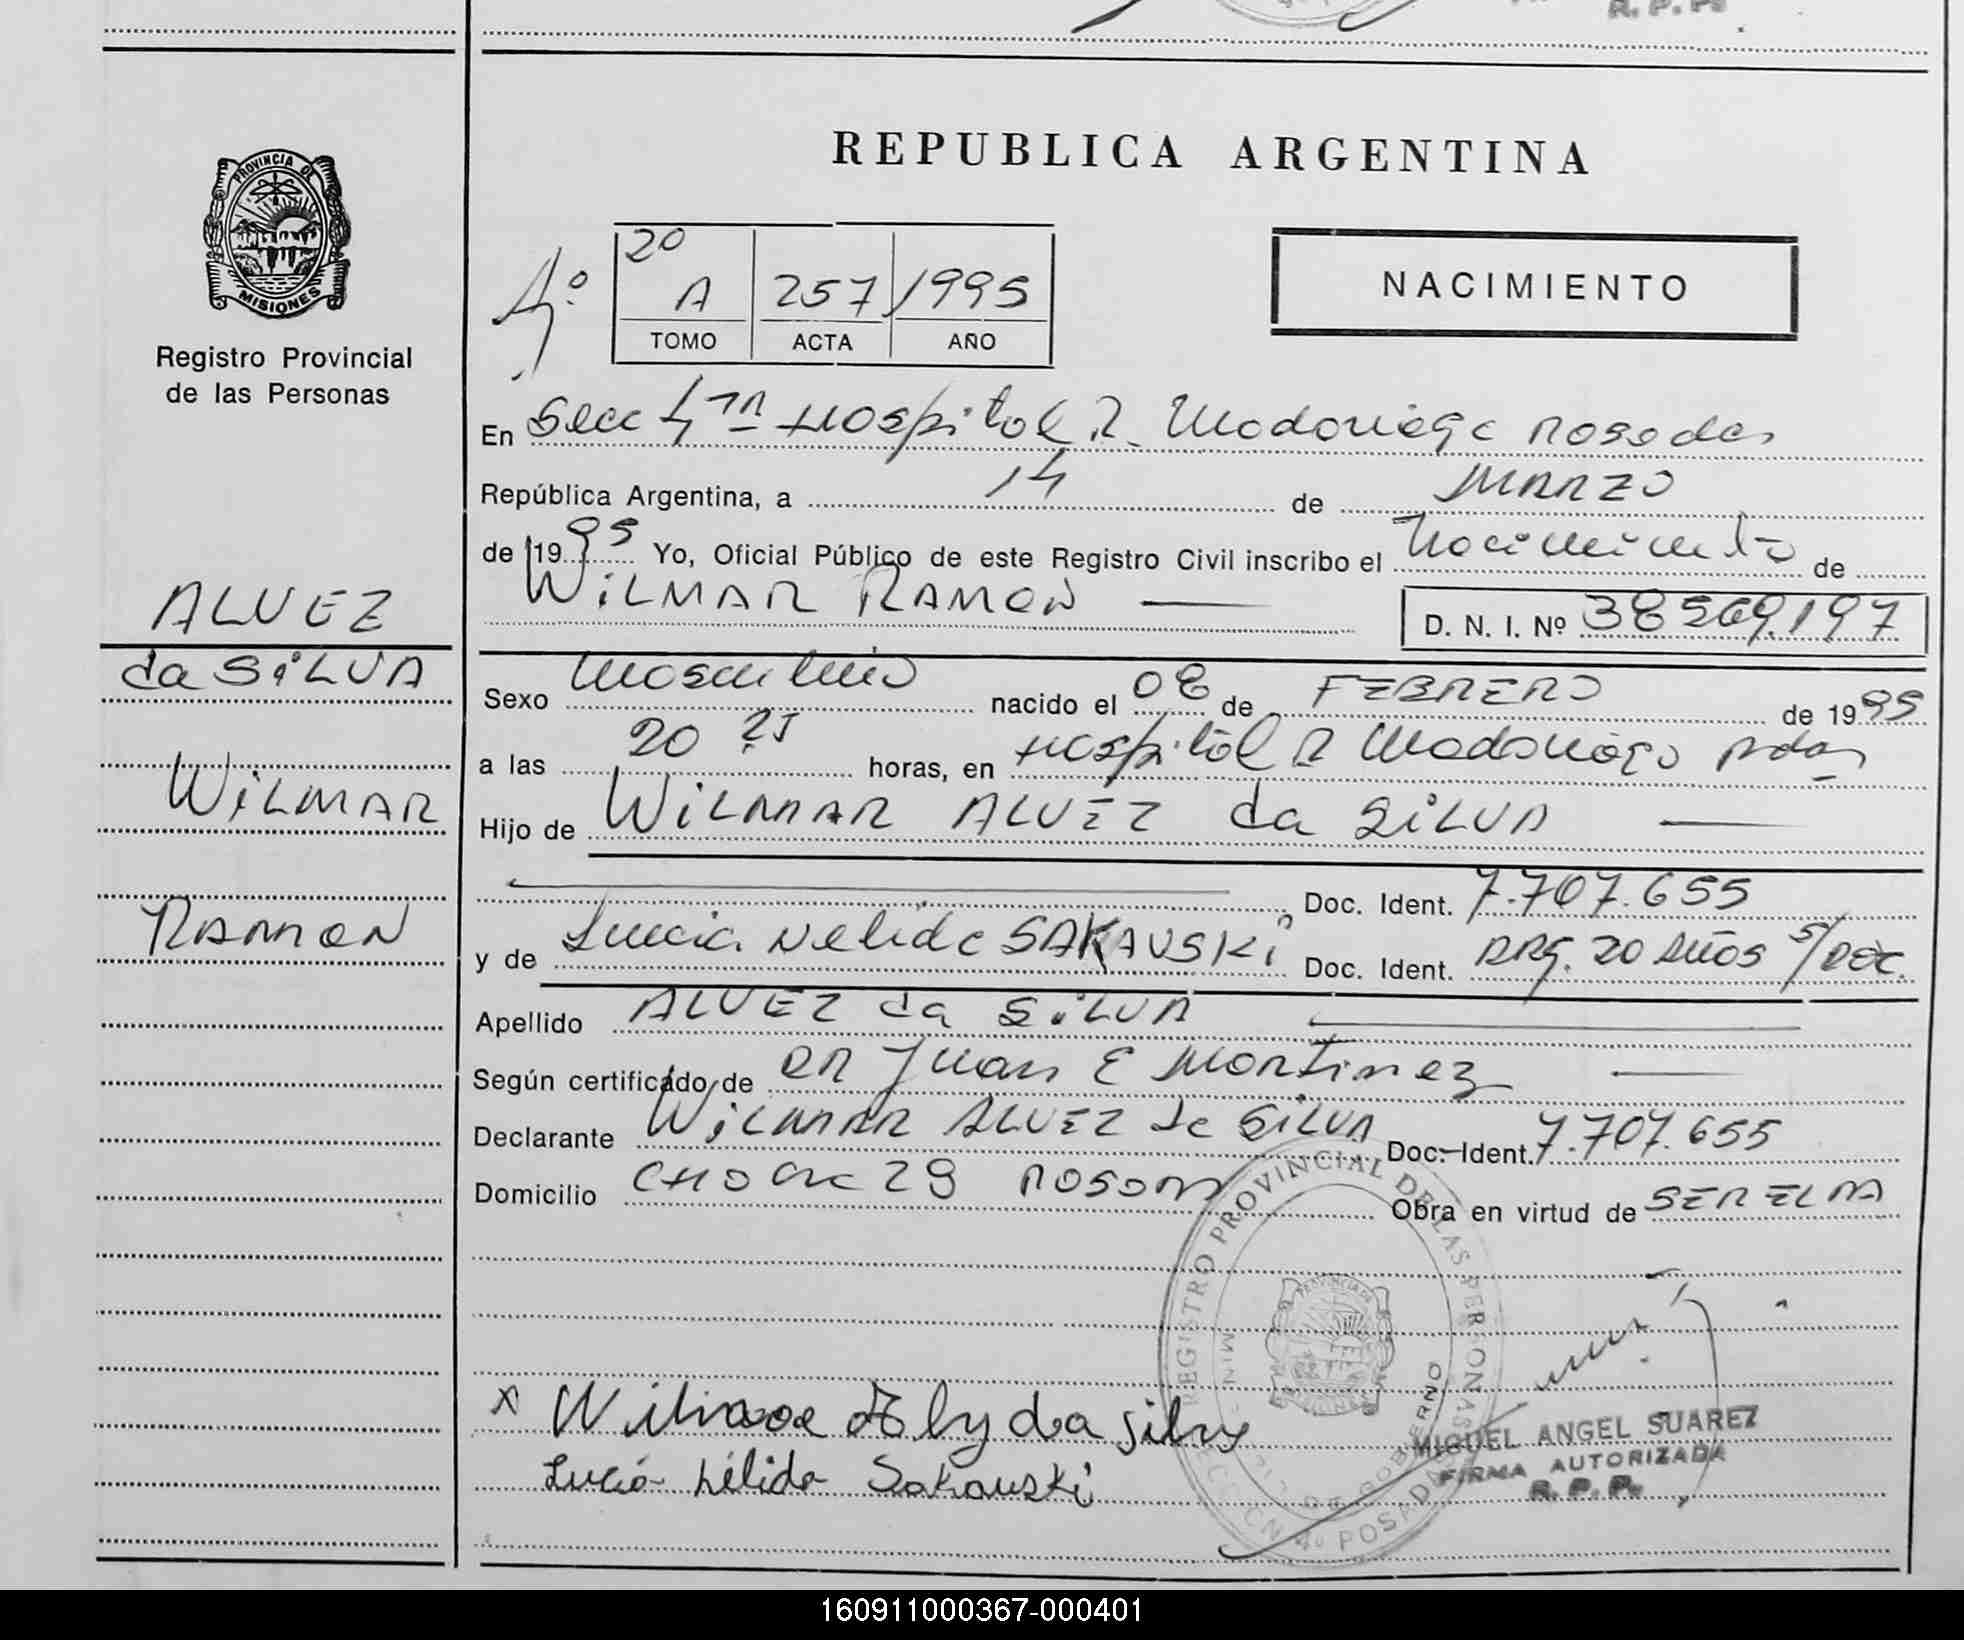 R. P. P.
REPUBLICA ARGENTINA
PROVINCIA DE
MISIONES
Registro Provincial
de las Personas
4º
20
A 257 1995
TOMO ACTA AÑO
NACIMIENTO
En Secc 4ta Hospital R. Madariaga Posadas
República Argentina, a 14 de MARZO
de 1995 Yo, Oficial Público de este Registro Civil inscribo el Nacimiento de
WiLMAR RAMON D. N. I. Nº 38569.197
ALVEZ
da SiLVA
WiLMAR
RAMON
Sexo Masculino nacido el 08 de FEBRERO de 1995
a las 20 25 horas, en Hospital R Madariaga Pdas
Hijo de WiLMAR ALVEZ da SiLVA
Doc. Ident. 7.707.655
y de Lucia Nelida SAKAUSKi Doc. Ident. ARG. 20 AÑOS S/DOC.
Apellido ALVEZ da SiLVA
Según certificado de DR Juan E Martinez
Declarante WiLMAR ALVEZ da SiLVA Doc. Ident. 7.707.655
Domicilio CHACRA 29 Obra en virtud de SER EL PA
REGISTRO PROVINCIAL DE LAS PERSONAS
PROVINCIA DE
x da silva
Lucia Nélida Sakauski
MIGUEL ANGEL SUAREZ
FIRMA AUTORIZADA
R. P. P.
160911000367-000401